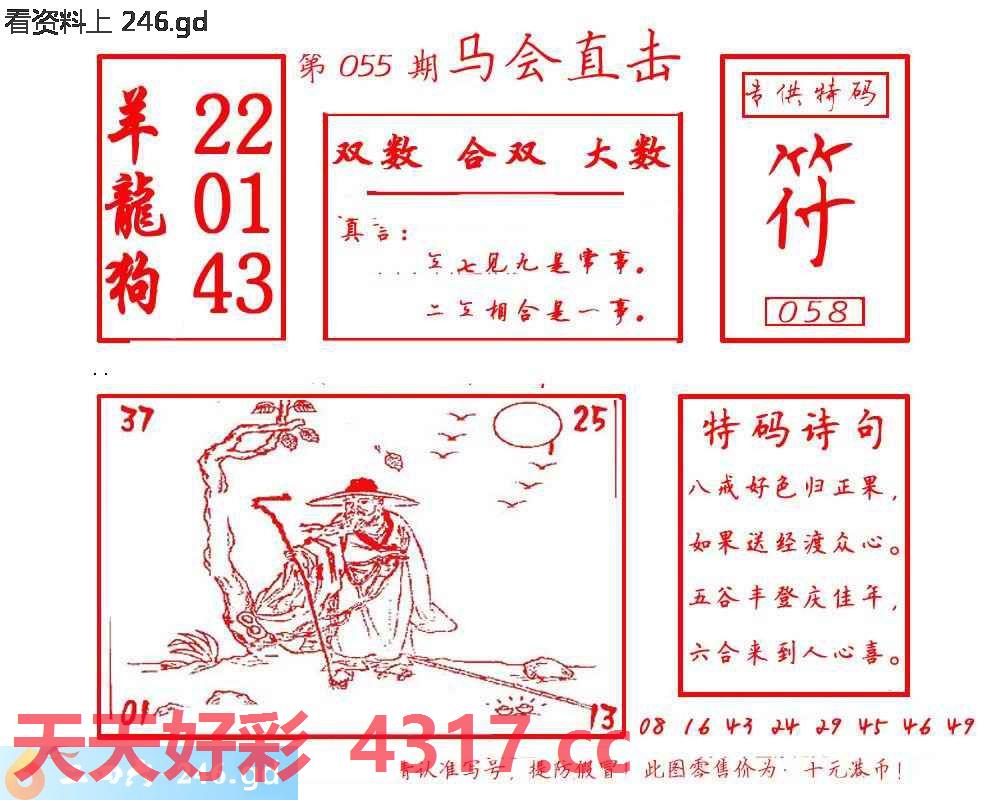 看资料上 246.gd
第 055 期 马会直击
羊 22
龍 01
狗 43
双数 合双 大数
真言：
七见九是常事。
二 相合是一事。
专供特码
符
058
37
25
01
13
特码诗句
八戒好色归正果，
如果送经渡众心。
五谷丰登庆佳年，
六合来到人心喜。
08 16 43 24 29 45 46 49
天天好彩 4317 cc
246.gd
认准写号，提防假冒！此图零售价为：十元港币！